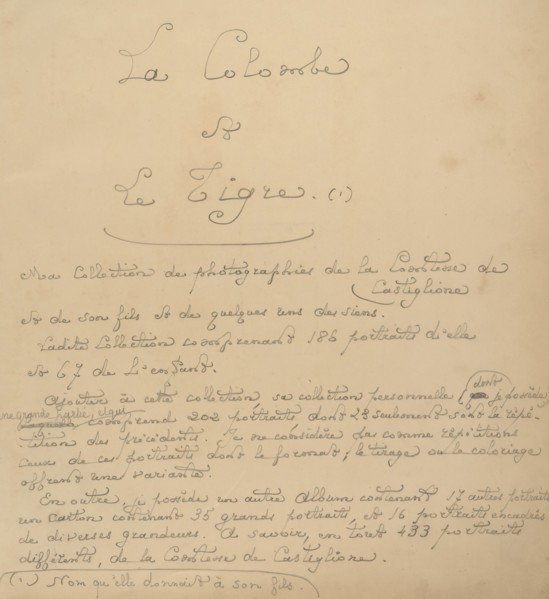 La Colombe
et
Le Tigre. (1)
Ma Collection de photographies de la Comtesse de
Castiglione
et de son fils et de quelques uns des siens.
Ladite Collection comprenant 186 portraits d'elle
et 67 de l'enfant.
Ajouter à cette collection sa collection personnelle (dont
je possède
une grande partie, et qui
comprend 202 portraits dont 28 seulement sont la répé-
tition des précédents. Je ne considère pas comme répétitions
ceux de ces portraits dont le format, le tirage ou le coloriage
offrent une variante.
En outre, je possède un autre Album contenant 17 autres portraits
un carton contenant 35 grands portraits, et 16 portraits encadrés
de diverses grandeurs. A savoir, en tout 433 portraits
différents, de la Comtesse de Castiglione.
(1) Nom qu'elle donnait à son fils.